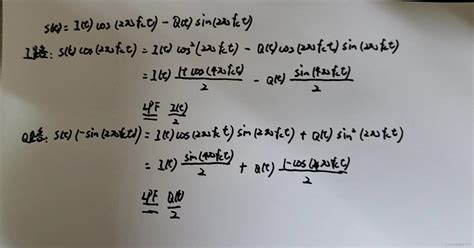 S(t) = I(t) cos(2πfct) − Q(t) sin(2πfct)
I路: S(t) cos(2πfct) = I(t) cos²(2πfct) − Q(t) cos(2πfct) sin(2πfct)
= I(t) (1+cos(4πfct))/2 − Q(t) sin(4πfct)/2
LPF = I(t)/2
Q路: S(t)(−sin(2πfct)) = I(t) cos(2πfct) sin(2πfct) + Q(t) sin²(2πfct)
= I(t) sin(4πfct)/2 + Q(t) (1−cos(4πfct))/2
LPF = Q(t)/2